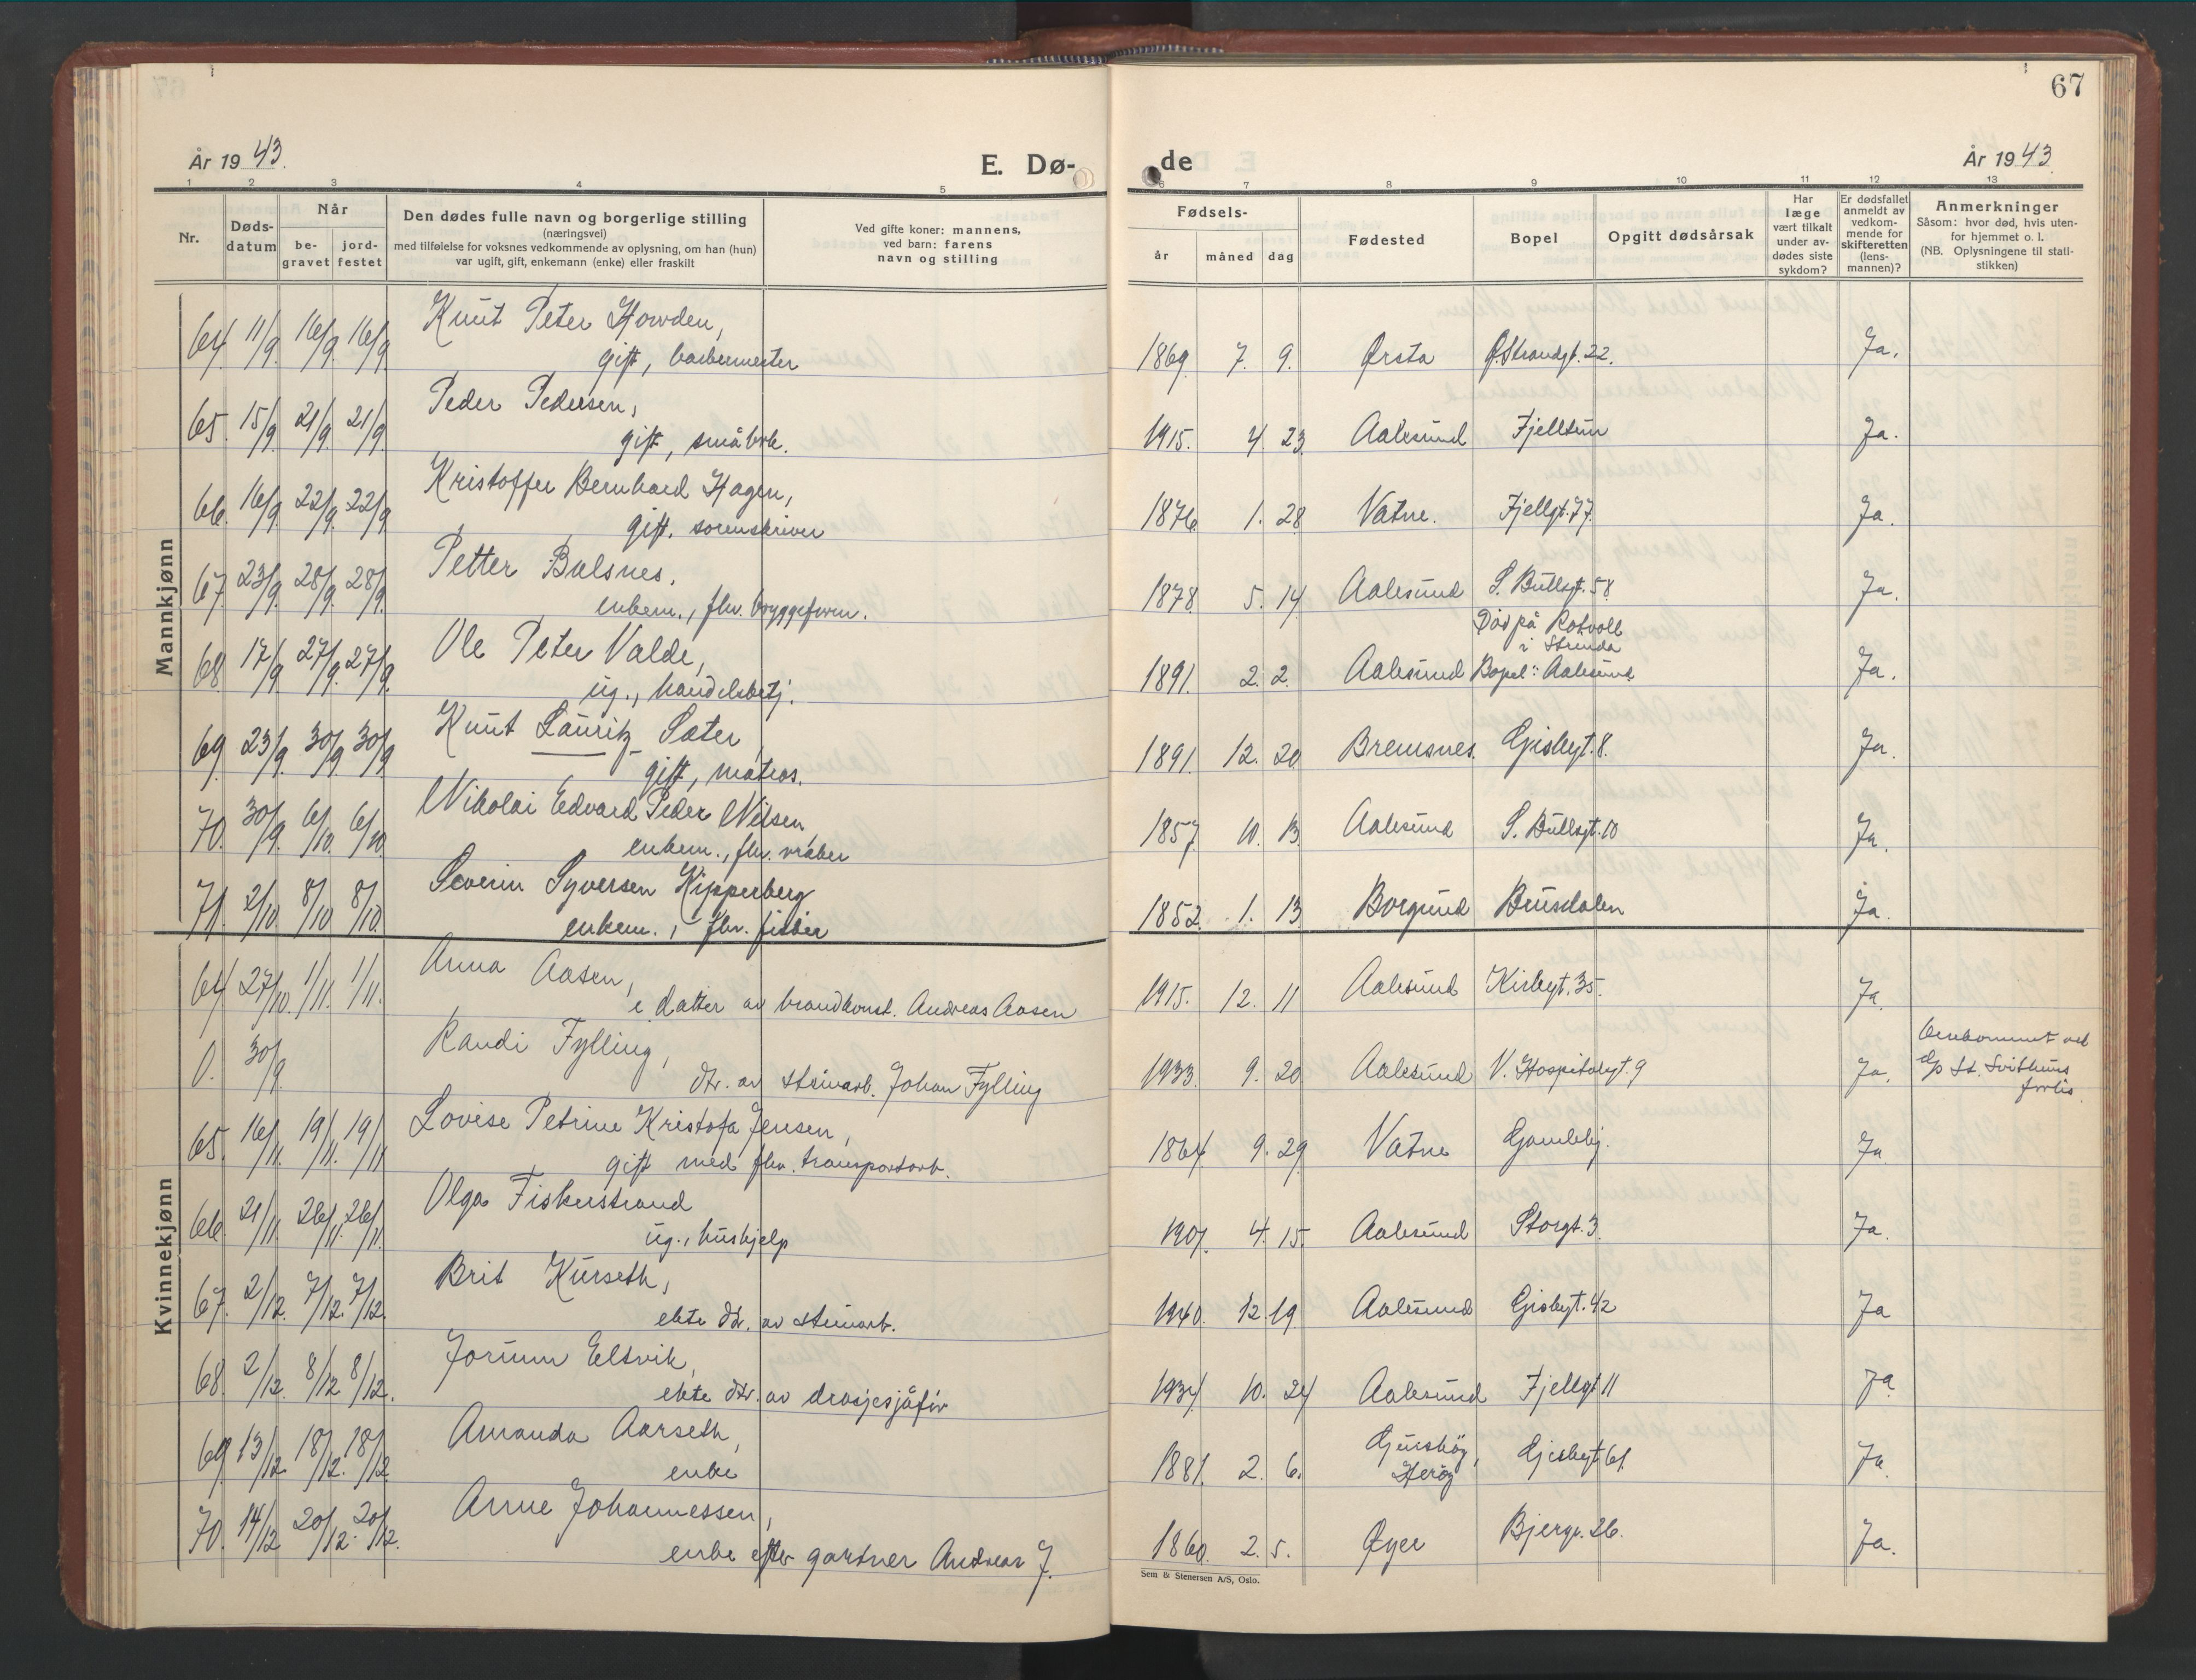 67
År 1943.
E. Dø-
de
År 1943.
1 2 3 4 5 6 7 8 9 10 11 12 13
Nr.
Døds-
datum
Når
be-
gravet
jord-
festet
Den dødes fulle navn og borgerlige stilling
(næringsvei)
med tilføielse for voksnes vedkommende av oplysning, om han (hun)
var ugift, gift, enkemann (enke) eller fraskilt
Ved gifte koner: mannens,
ved barn: farens
navn og stilling
Fødsels-
år måned dag
Fødested
Bopel
Opgitt dødsårsak
Har
læge
vært tilkalt
under av-
dødes siste
sykdom?
Er dødsfallet
anmeldt av
vedkom-
mende for
skifteretten
(lens-
mannen)?
Anmerkninger
Såsom: hvor død, hvis uten-
for hjemmet o. l.
(NB. Oplysningene til stati-
stikken)
Mannkjønn
64 11/9 16/9 16/9 Knut Peter Howden,
gift, barbermester
1869 7. 9. Ørsta Ø.Strandgt. 22. Ja.
65. 15/9 21/9 21/9 Peder Pedersen,
gift, småbrk.
1915. 4. 23 Aalesund Fjelltun Ja.
66. 16/9 22/9 22/9 Kristoffer Bernhard Hagen,
gift, sorenskriver
1876 1. 28 Vatne. Fjellgt. 77. Ja.
67. 23/9 28/9 28/9 Petter Balsnes,
enkem., fhv. bryggeform.
1878 5. 14 Aalesund S. Bullsgt. 58 Ja.
68 17/9 27/9 27/9 Ole Peter Valde,
ug., handelsbetj.
Død på Rotvoll
i Strinda
1891. 2. 2. Aalesund Bopel: Aalesund Ja.
69. 23/9 30/9 30/9 Knut Lauritz Sæter,
gift, matros.
1891. 12. 20 Bremsnes. Gisbgt. 8. Ja.
70. 30/9 6/10 6/10 Nikolai Edvard Peder Nilsen,
enkem., fhv. vraker
1857. 10. 13 Aalesund S. Bullsgt. 10 Ja.
71. 2/10 8/10 8/10 Severin Syversen Kipperberg
enkem., fhv. fisker
1852. 1. 13 Borgund Brusdalen Ja
Kvinnekjønn
64 27/10. 1/11. 1/11. Anna Aasen,
e datter av brandkonst. Andreas Aasen
1915. 12. 11 Aalesund Kirkegt. 35. Ja.
0. 30/9 Randi Fylling,
dtr. av steinarb. Johan Fylling
1933. 9. 20 Aalesund V. Hospitalsgt. 9 Ja.
Omkommet ved
D/S St. Svithuns
forlis.
65. 16/11. 19/11. 19/11 Lovise Petrine Kristofa Jensen,
gift med fhv. transportarb.
1864 9. 29 Vatne Gamlehj. Ja
66. 21/11. 26/11. 26/11. Olga Fiskerstrand
ug., hushjelp
1907. 4. 15. Aalesund Storgt. 3. Ja.
67. 2/12. 7/12. 7/12. Brit Kurseth,
ekte dtr. av steinarb.
1940. 12. 19. Aalesund Gisbgt. 42 Ja
68. 2/12. 8/12 8/12. Jorunn Eltvik,
ekte dtr. av drosjesjåfør
1934 10. 24 Aalesund Fjellgt 11 Ja
69. 13/12. 18/12. 18/12 Amanda Aarseth,
enke
1881. 2. 6. Gjurshög,
Herøy
Gisbgt 61. Ja.
70. 14/12 20/12. 20/12. Anne Johannessen,
enke efter gartner Andreas J.
1860. 2. 5. Øyer Bjergv. 26. Ja.
Sem & Stenersen A/S, Oslo.